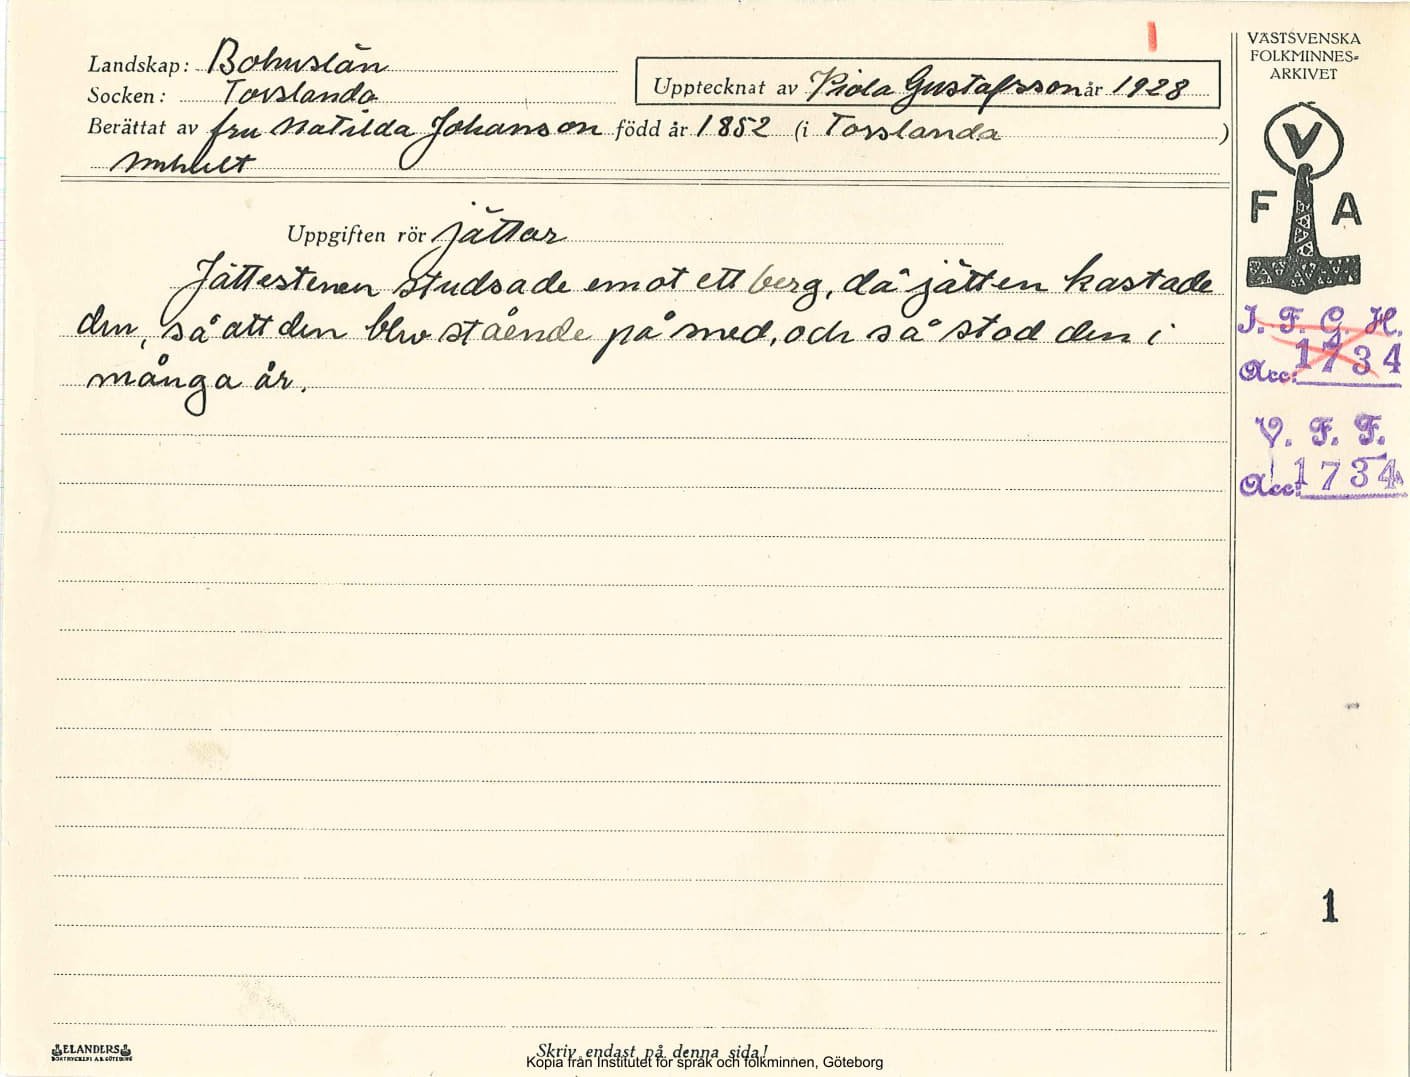 Landskap: Bohuslän
Socken: Torslanda
Upptecknat av Viola Gustafsson år 1928
Berättat av fru Matilda Johanson född år 1852 (i Torslanda)
Uppgiften rör jättar
Jättestenen studsade emot ett berg, då jätten kastade
den, så att den blev stående på sned, och så stod den i
många år.
Skriv endast på denna sida!
Kopia från Institutet för språk och folkminnen, Göteborg
ELANDERS
BOKTRYCKERI A.B. GÖTEBORG
VÄSTSVENSKA
FOLKMINNES-
ARKIVET
V
F A
I. F. G. H.
Acc: 1734
V. F. F.
Acc: 1734
1